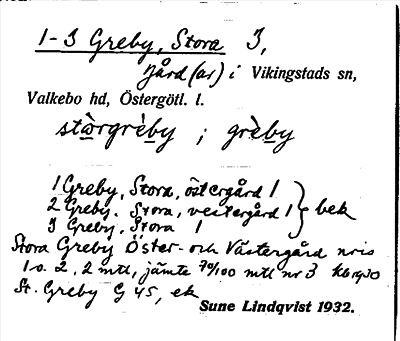 1-3 Greby, Stora 3,
gård(ar) i Vikingstads sn,
Valkebo hd, Östergötl. l.
stòrgrèby ; grèby
1 Greby, Stora, östergård 1
2 Greby, Stora, vestergård 1 } bek
3 Greby, Stora 1
Stora Greby Öster- och Västergård nris
1 o. 2, 2 mtl, jämte 70/100 mtl nr 3 Kb 1930
St. Greby G 45, ek
Sune Lindqvist 1932.